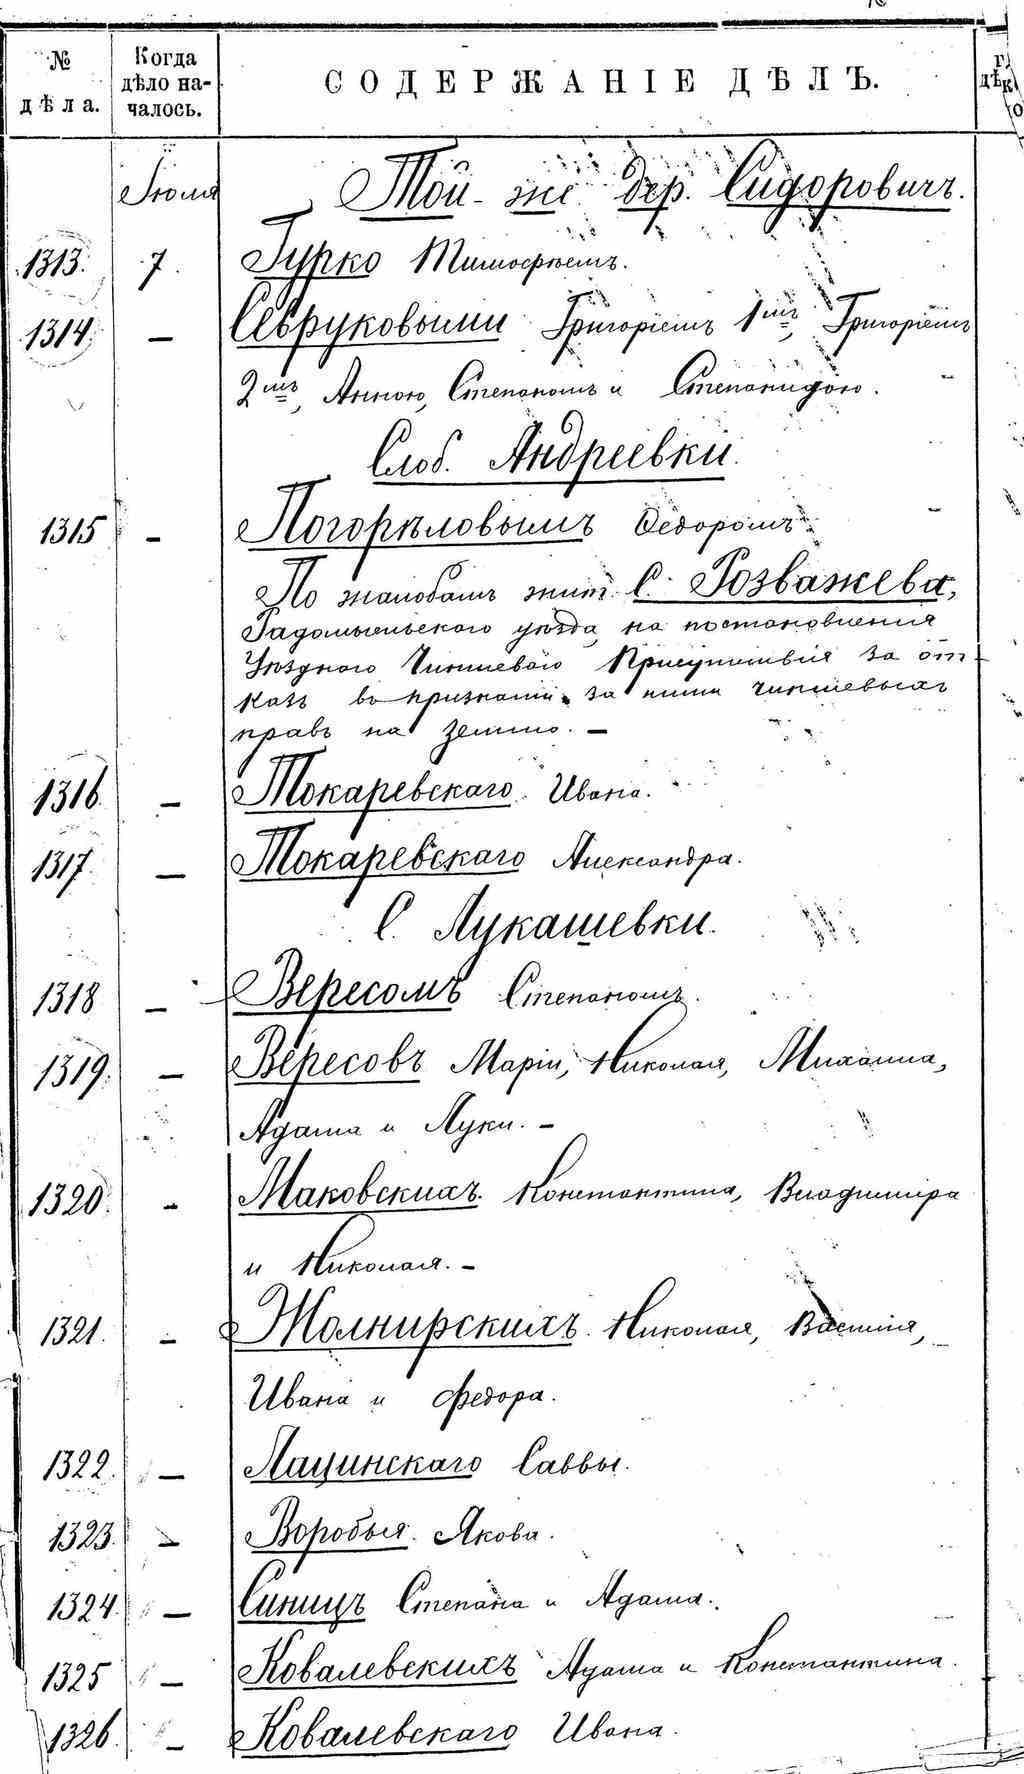 № дѣла.
Когда дѣло началось.
СОДЕРЖАНІЕ ДѢЛЪ.
Іюля Той-же дер. Сидоровичъ.
1313. 7. Гурко Тимофѣемъ.
1314. — Севруковыми Григоріемъ 1мъ, Григоріемъ
2мъ, Анною, Степаномъ и Степанидою.
Слоб. Андреевки.
1315 — Погорѣловымъ Ѳедоромъ
По жалобамъ жит. С. Розважева,
Радомысльского уѣзда, на постановленія
Уѣздного Чиншевого Присутствія за от-
казъ въ признаніи за ними чиншевыхъ
правъ на землю. —
1316. — Токаревскаго Ивана.
1317. — Токаревскаго Александра.
С. Лукашевки.
1318 — Вересомъ Степаномъ.
1319. — Вересовъ Маріи, Николая, Михаила,
Адама и Луки. —
1320. — Маковскихъ. Константина, Владиміра
и Николая. —
1321. — Жолнирскихъ. Николая, Василія,
Ивана и Федора.
1322. — Лацинскаго Саввы.
1323. — Воробья. Якова.
1324. — Синицъ Степана и Адама.
1325 — Ковалевскихъ Адама и Константина.
1326. — Ковалевскаго Ивана.